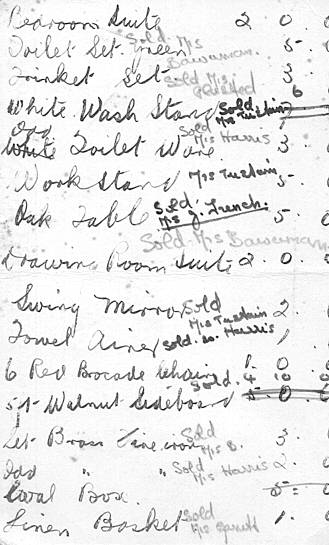 Bedroom Suite 2 0 0
Toilet Set Green Sold Mrs Bawerman. 5 0
Trinket Set Sold Mrs 3
White Wash Stand Sold Mrs Tustain 6
Odd White Toilet Ware Sold Mrs Harris 3 0
Work Stand Mrs Tustain 5
Oak Table Sold Mrs J. Lunch. 5 0
Sold Mrs Bawerman
Drawing Room Suite 2 0
Swing Mirror Sold Mrs Tustain 2. 0
Towel Airer Sold. to. Harris 1 0
6 Red Brocade Chairs 1. 0 0
5 ft Walnut Sideboard Sold. 4 10 0
5 0 0
Set Brass Fire irons Sold Mrs B. 3
Odd " " Sold Mrs Harris 2. 0
Coal Box. 5 = 0
Linen Basket Sold Mrs 1. 0